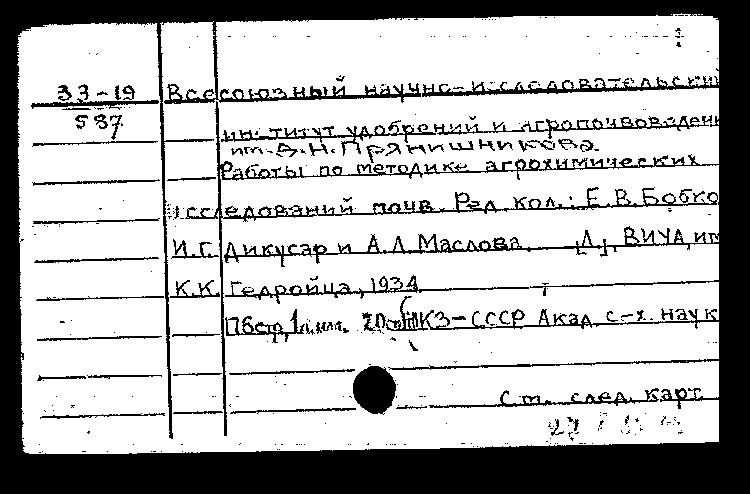 33-19 Всесоюзный научно-исследовательский
537 институт удобрений и агропочвоведени
им. Д.Н. Прянишникова.
Работы по методике агрохимических
исследований почв. Ред. кол.: Е.В. Бобко
И.Г. Дикусар и А.Л. Маслова. [Л.], ВИУА им
К.К. Гедройца, 1934.
116 стр, 1 л. илл. 20 см (НКЗ-СССР Акад. с-х. наук
См. след. карт.